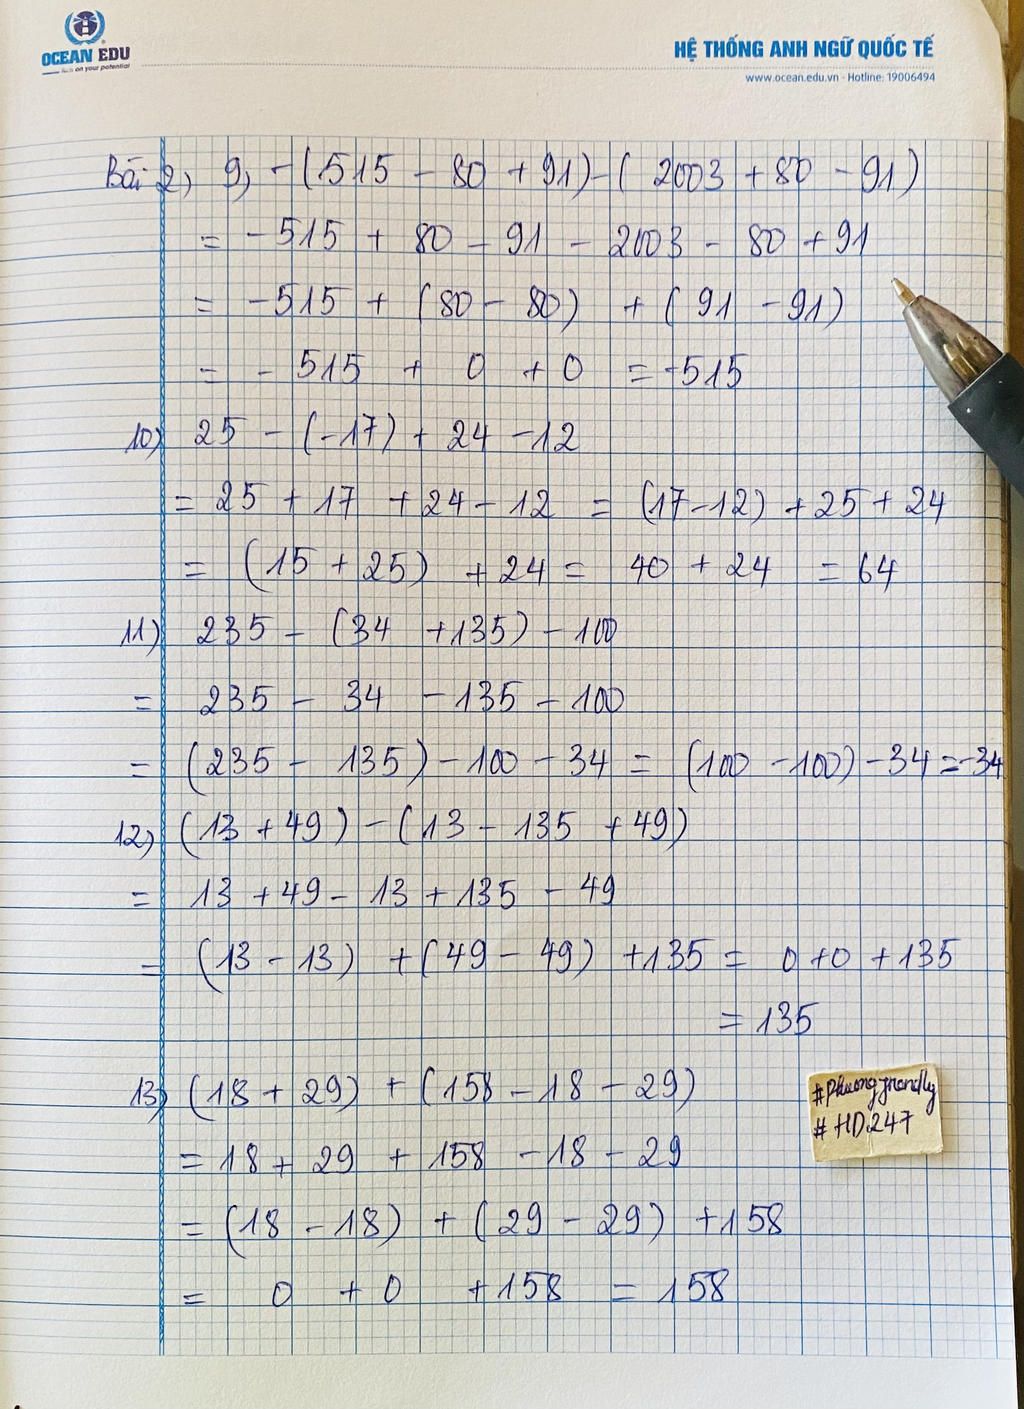 OCEAN EDU
on your potential
HỆ THỐNG ANH NGỮ QUỐC TẾ
www.ocean.edu.vn - Hotline: 19006494
Bài 2, 9, -(515 - 80 + 91) - ( 2003 + 80 - 91)
= -515 + 80 - 91 - 2003 - 80 + 91
= -515 + (80 - 80) + (91 - 91)
= - 515 + 0 + 0 = -515
10) 25 - (-17) + 24 - 12
= 25 + 17 + 24 - 12 = (17-12) + 25 + 24
= (15 + 25) + 24 = 40 + 24 = 64
11) 235 - (34 + 135) - 100
= 235 - 34 - 135 - 100
= (235 - 135) - 100 - 34 = (100 - 100) - 34 = -34
12) (13 + 49) - (13 - 135 + 49)
= 13 + 49 - 13 + 135 - 49
= (13 - 13) + (49 - 49) + 135 = 0 + 0 + 135
= 135
13) (18 + 29) + (158 - 18 - 29)
= 18 + 29 + 158 - 18 - 29
= (18 - 18) + (29 - 29) + 158
= 0 + 0 + 158 = 158
#HD247